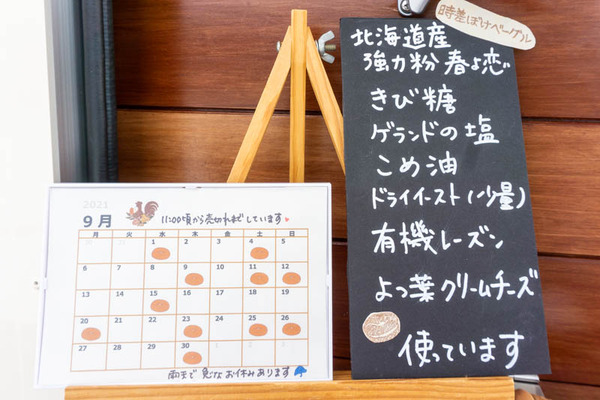 時差ぼけベーグル
北海道産
強力粉 春よ恋
きび糖
ゲランドの塩
こめ油
ドライイースト(少量)
有機レーズン
よつ葉クリームチーズ
使っています
2021
9月
11:00頃から売切れまでしています
月 火 水 木 金 土 日
30 31 1 2 3 4 5
6 7 8 9 10 11 12
13 14 15 16 17 18 19
20 21 22 23 24 25 26
27 28 29 30 1 2 3
雨天で急なお休みあります